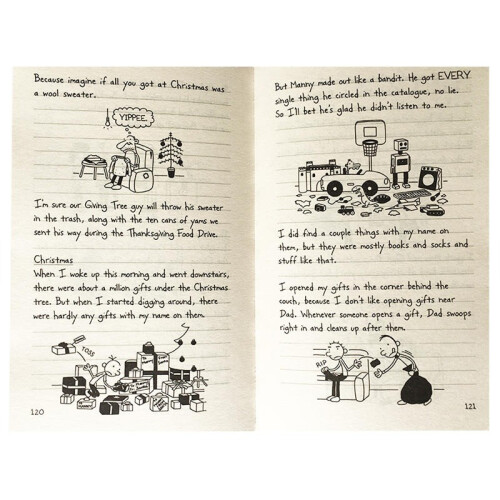 Because imagine if all you got at Christmas was
a wool sweater.
YIPPEE.
I'm sure our Giving Tree guy will throw his sweater
in the trash, along with the ten cans of yams we
sent his way during the Thanksgiving Food Drive.
Christmas
When I woke up this morning and went downstairs,
there were about a million gifts under the Christmas
tree. But when I started digging around, there
were hardly any gifts with my name on them.
TOSS
120
But Manny made out like a bandit. He got EVERY
single thing he circled in the catalogue, no lie.
So I'll bet he's glad he didn't listen to me.
I did find a couple things with my name on
them, but they were mostly books and socks and
stuff like that.
I opened my gifts in the corner behind the
couch, because I don't like opening gifts near
Dad. Whenever someone opens a gift, Dad swoops
right in and cleans up after them.
RIP
121